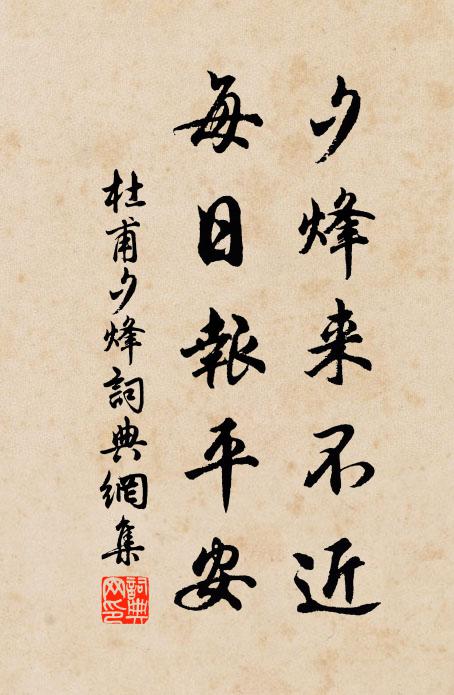 夕烽来不近
每日報平安
杜甫夕烽詞典網集
詞典网印